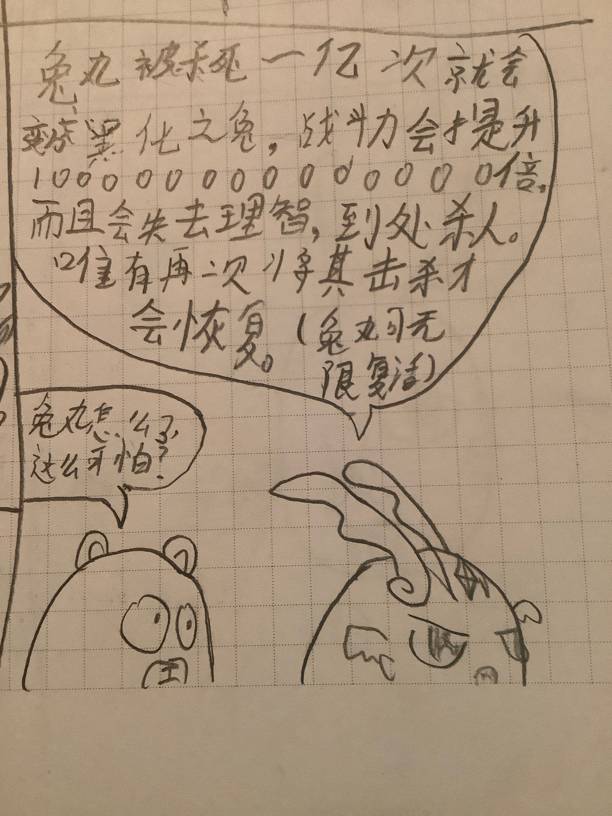 兔丸被杀死一亿次就会
变成黑化之兔,战斗力会提升
10000000000000倍。
而且会失去理智,到处杀人。
唯有再次将其击杀才
会恢复。(兔丸可无
限复活)
兔丸怎么了,
这么可怕?